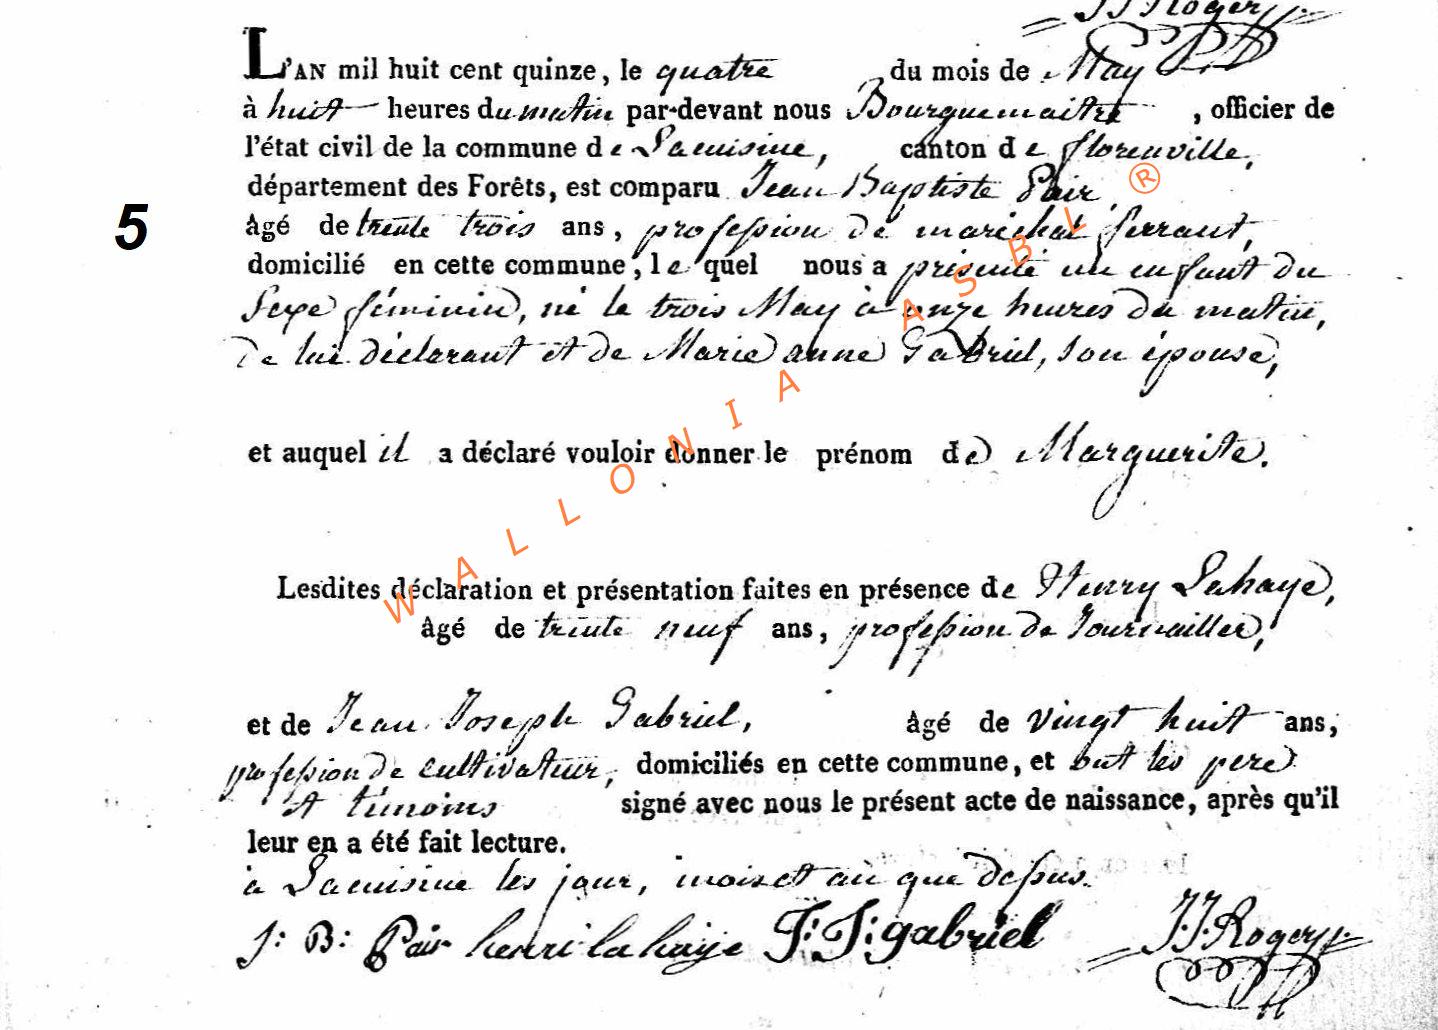 J J Rogery
L'AN mil huit cent quinze, le quatre du mois de May
à huit heures du matin par-devant nous Bourguemaitre, officier de
l'état civil de la commune de Lacuisine, canton de florenville,
département des Forêts, est comparu Jean Baptiste Pair
5
âgé de trente trois ans, profession de maréchal ferrant,
domicilié en cette commune, le quel nous a présenté un enfant du
Sexe féminin, né le trois May à onze heures du matin,
de lui déclarant et de Marie anne Gabriel, son épouse,
et auquel il a déclaré vouloir donner le prénom de Marguerite.
Lesdites déclaration et présentation faites en présence de Henry Lahaye,
âgé de trente neuf ans, profession de Journailler,
et de Jean Joseph Gabriel, âgé de vingt huit ans,
profession de cultivateur, domiciliés en cette commune, et ont les pere
et témoins signé avec nous le présent acte de naissance, après qu'il
leur en a été fait lecture.
à Lacuisine les jour, mois et an que dessus.
J: B: Pair henri la haye J: J: gabriel J. J. Rogery
WALLONIA ASBL ®